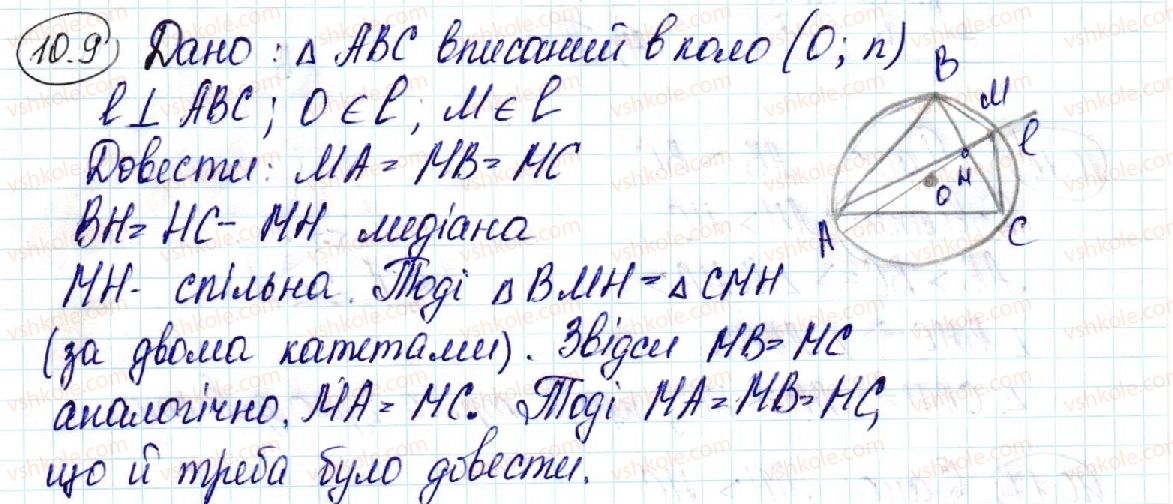 10.9 Дано: △ ABC вписаний в коло (O; r)
l⊥ ABC; O ∈ l; M ∈ l
Довести: MA = MB = MC
BH = HC - MH медіана
MH - спільна. Тоді △ BMH = △ CMH
(за двома катетами). Звідси MB = MC
аналогічно. MA = MC. Тоді MA = MB = MC,
що й треба було довести.
B
M
l
H
O
A
C